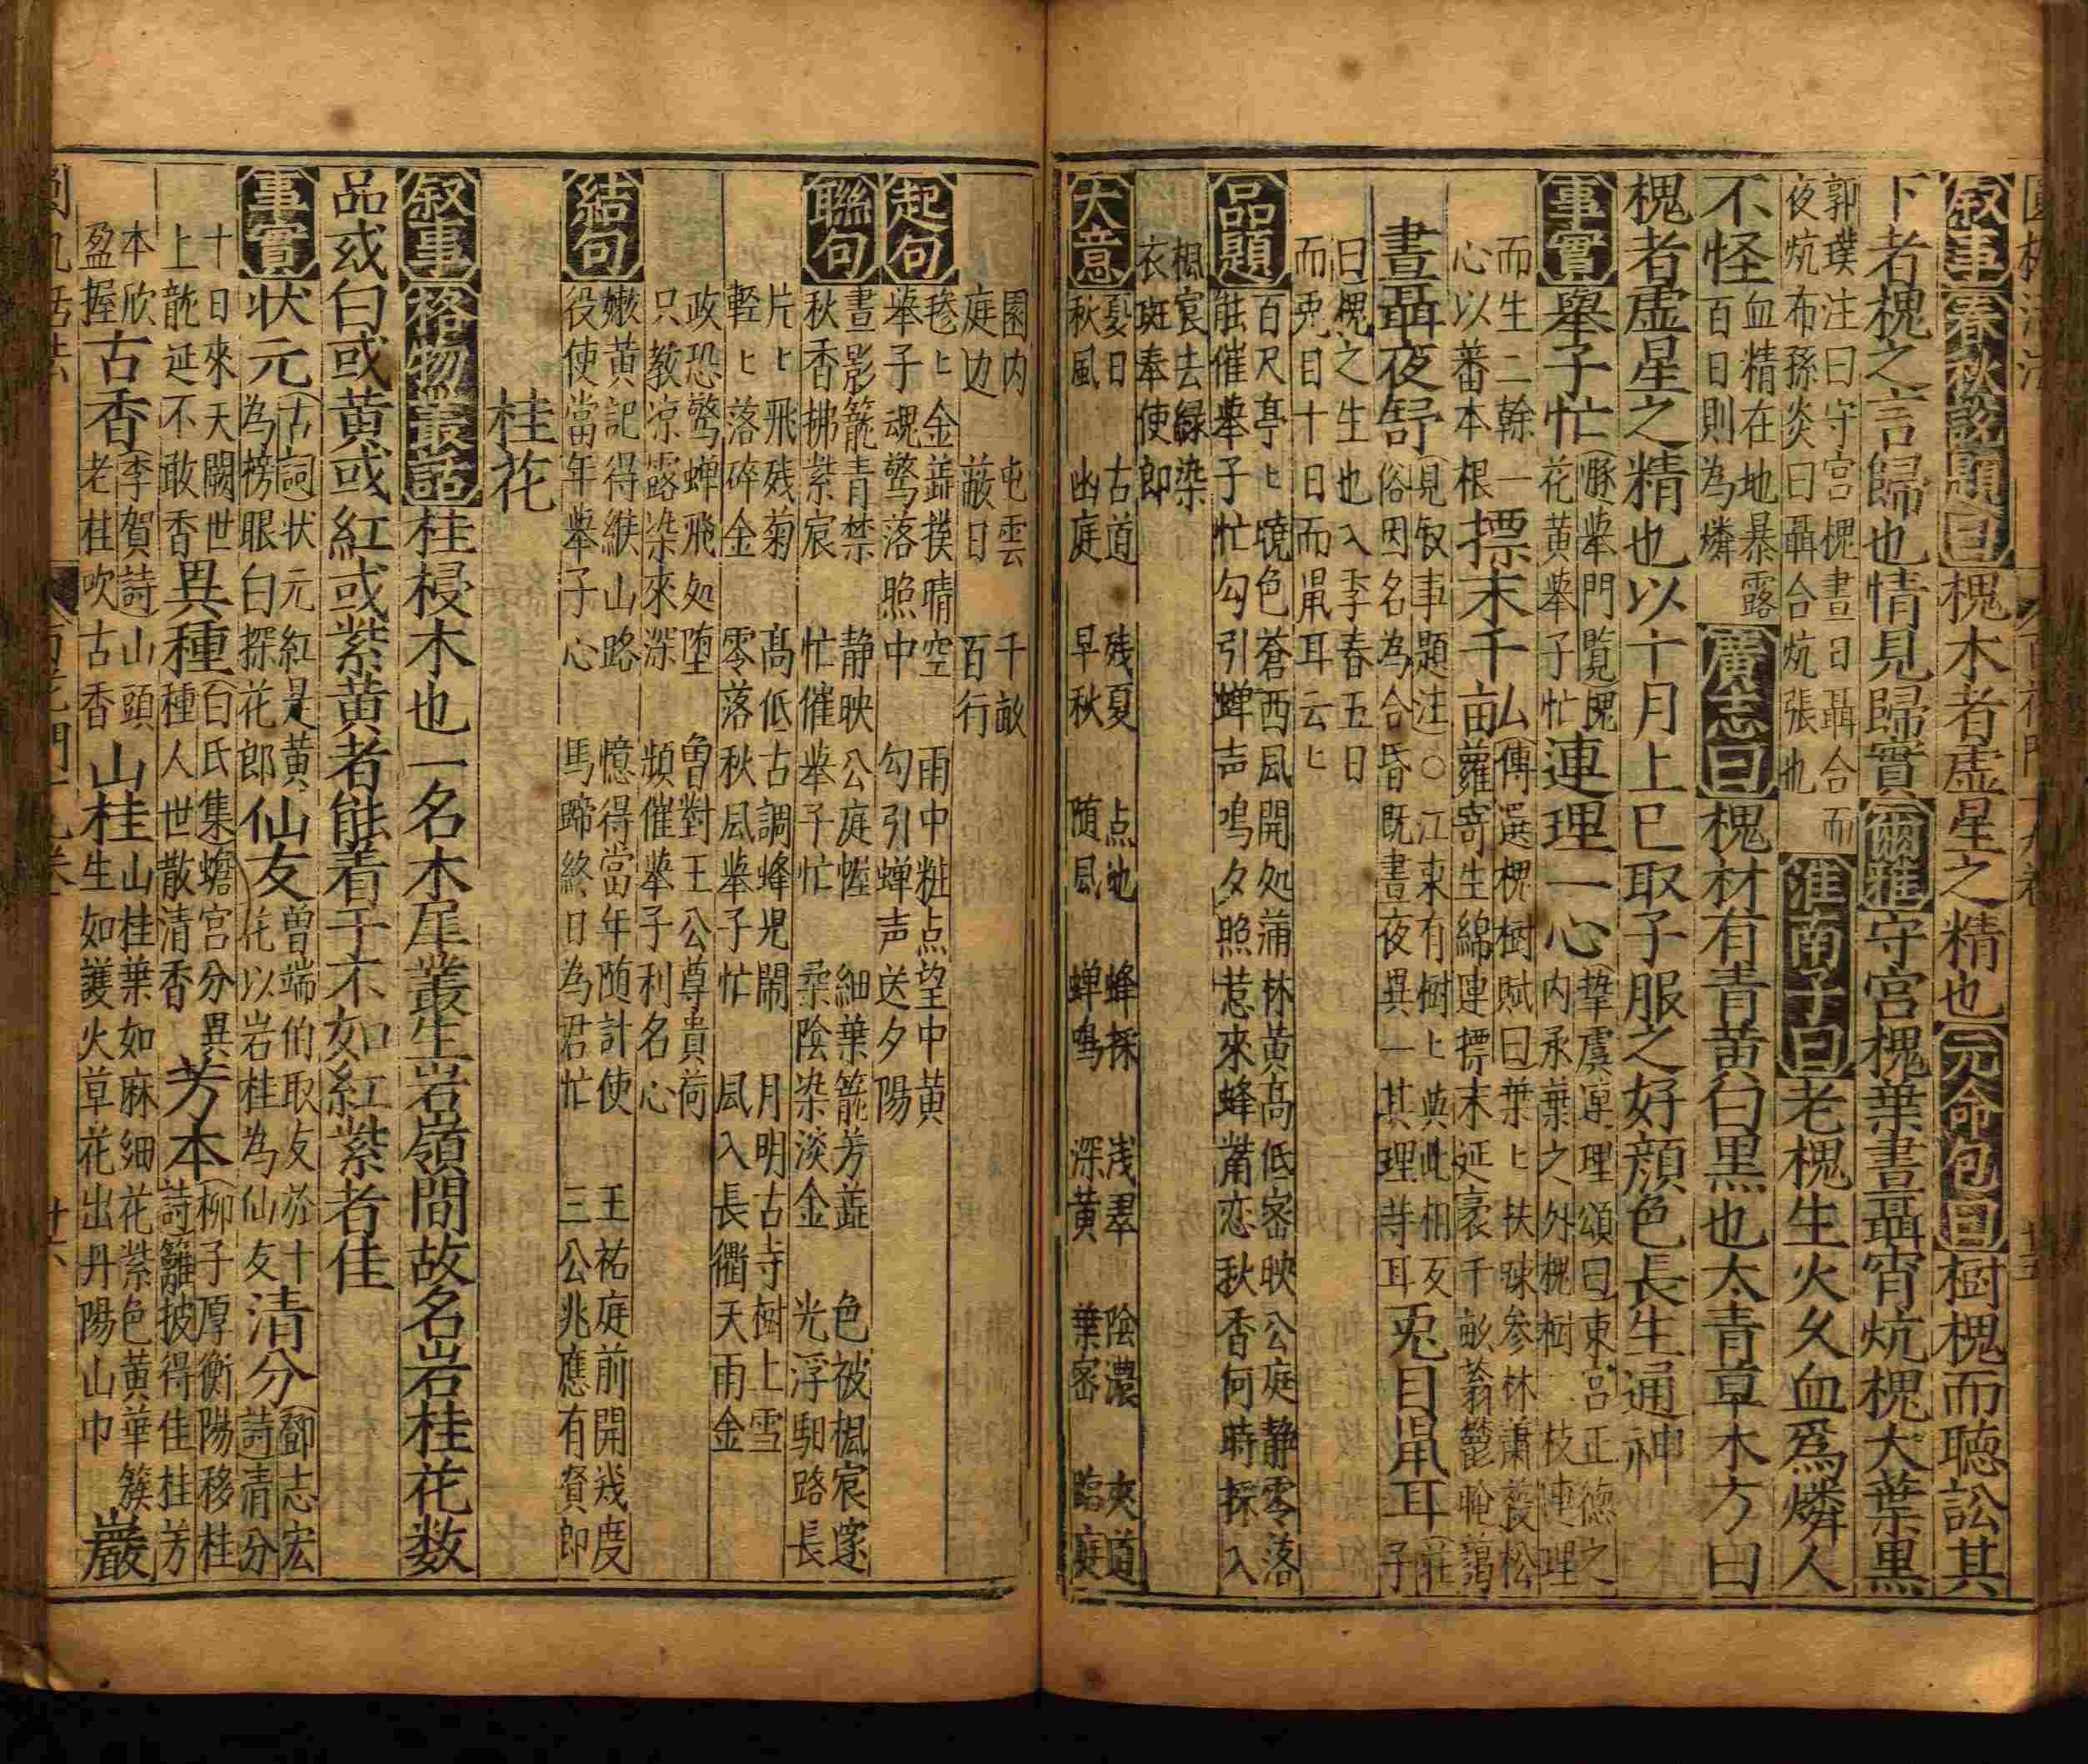 叙事春秋説題曰槐木者虚星之精也元命包曰樹槐而聴訟其
下者槐之言歸也情見歸實爾雅守宮槐葉晝聶宵炕槐大葉黒
郭璞注曰守宮槐晝日聶合而
夜炕布孫炎曰聶合炕張也
淮南子曰老槐生火久血爲燐人
不怪
血精在地暴露
百日則為燐
廣志曰槐材有青黄白黒也太青草木方曰
槐者虚星之精也以十月上巳取子服之好顔色長生通神
事實舉子忙
花黄举子忙
連理一心
摯虞連理頌曰東宮正徳之
内承華之外槐樹二枝連理
而生二幹一
心以蕃本根
摽末千亩
傳選槐樹賦曰葉ヒ扶踈参林蕭莪松
蘿寄生綿連摽末延袤千畝蓊欝晻藹
晝聶夜舒
見叙事題注○江東有樹ヒ與此相反
俗因名為合昏既晝夜異一其理等耳
兎目鼠耳
莊
子
曰槐之生也入季春五日
而兎目十日而鼠耳云ヒ
品題
百尺亭ヒ暁色蒼西風開処蒲林黄高低密映公庭静零落
能催举子忙勾引蝉声鳴夕照惹來蜂觜恋秋香何時採入
楓宸去緑染
衣斑奉使郎
大意
夏日　古道　残夏　点地　蜂採　浅翠　陰濃　夾道
秋風　幽庭　早秋　随風　蝉鳴　深黄　葉密　臨庭
園内　屯雲　千畝
庭边　蔽日　百行
起句
毿ヒ金蕋撲晴空　雨中粧点望中黄
举子魂驚落照中　勾引蝉声送夕陽
聯句
晝影籠青禁　静映公庭幄　細葉籠芳蕋　色被楓宸邃
秋香拂紫宸　忙催举子忙　柔陰染淡金　光浮馹路長
片ヒ飛残菊　高低古調蜂児閙　月明古寺樹上雪
軽ヒ落碎金　零落秋風举子忙　風入長衢天雨金
政恐驚蝉飛処堕　魯對王公尊貴荷
只教凉露染來深　頻催举子利名心
結句
嫩黄記得緱山路　憶得當年随計使　王祐庭前開幾度
役使當年举子心　馬蹄終日為君忙　三公兆應有賢郎
桂花
叙事格物叢話桂梫木也一名木犀叢生岩嶺間故名岩桂花数
品或白或黄或紅或紫黄者能着子不如紅紫者佳
事實状元
古詞状元紅是黄
為榜眼白探花郎
仙友
曽端伯取友於十
花以岩桂為仙友
清分
鄧志宏
詩清分
十日來天闕世
上龍延不敢香
異種
白氏集蟾宮分異
種種人世散清香
芳本
柳子厚衡陽移桂
詩籬披得佳桂芳
本欣
盈握
古香
李賀詩山頭
老桂吹古香
山桂
山桂葉如麻細花紫色黄華簇
生如護火草花出丹陽山巾
巖